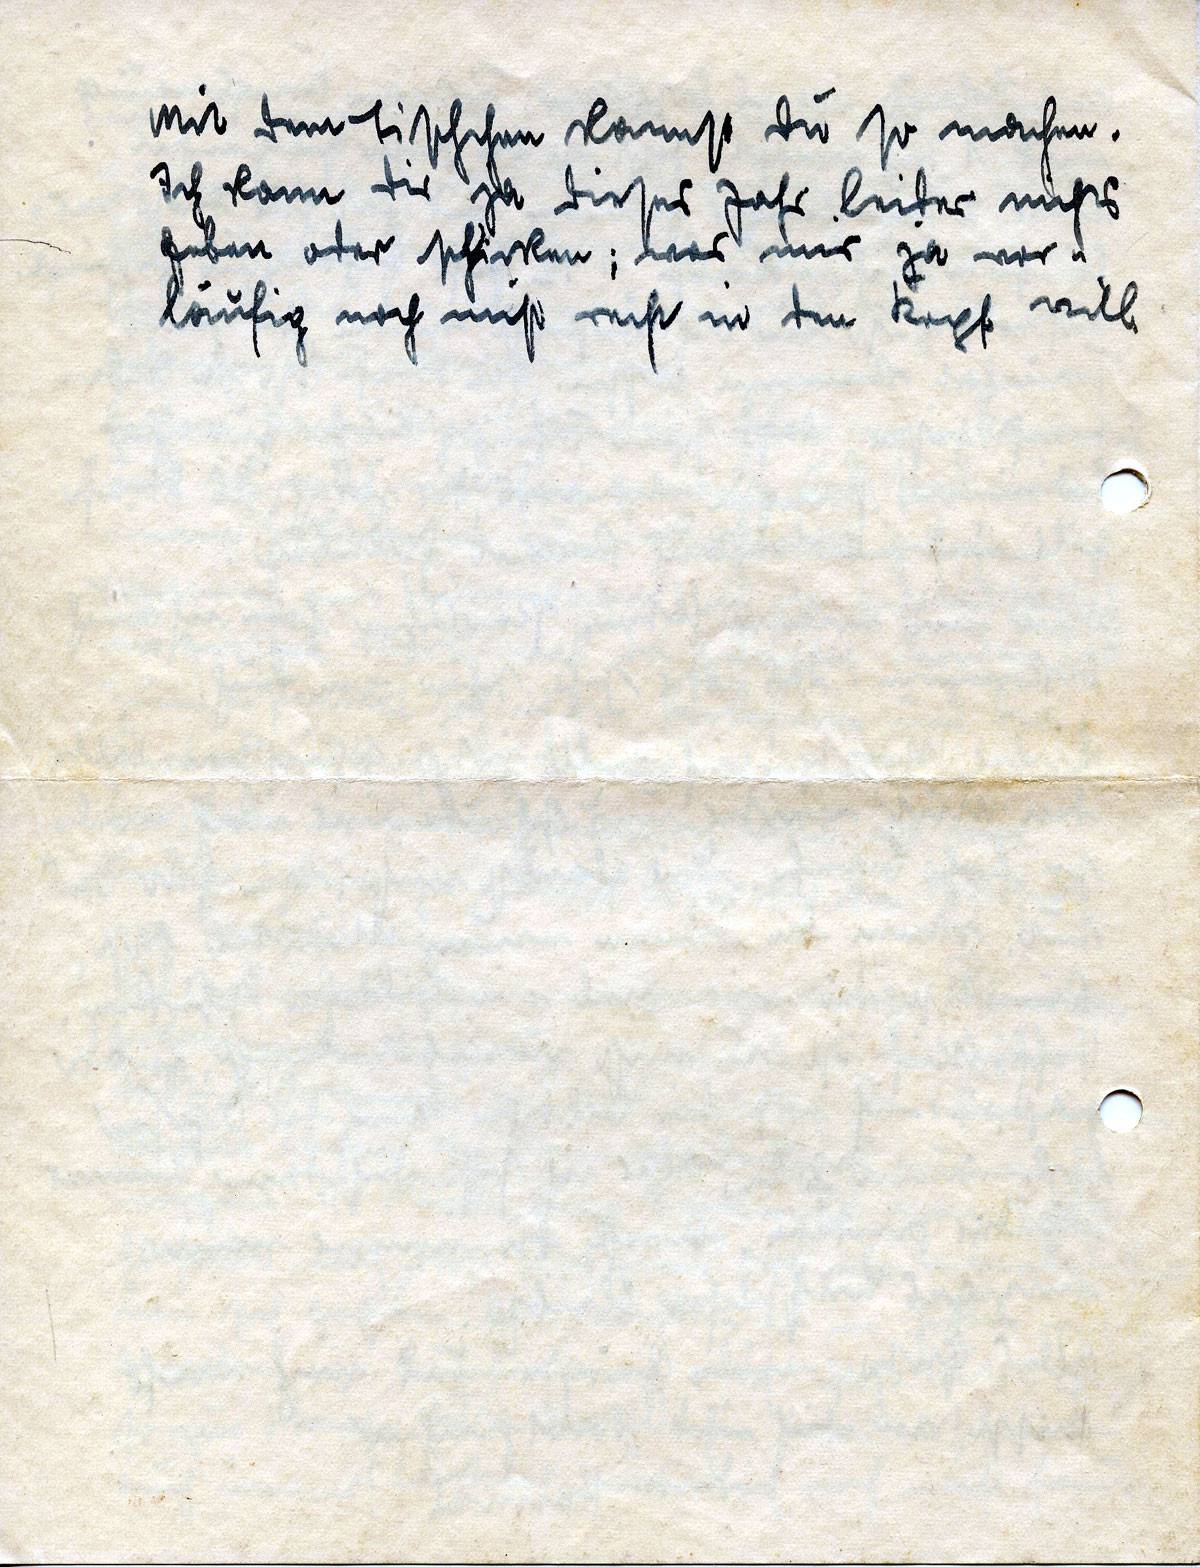 Mit dem Tischchen kannst Du so machen.
Ich kann dir ja dieses Jahr leider nichts
geben oder schicken; was mir ja vor-
läufig noch nicht recht in den Kopf will.